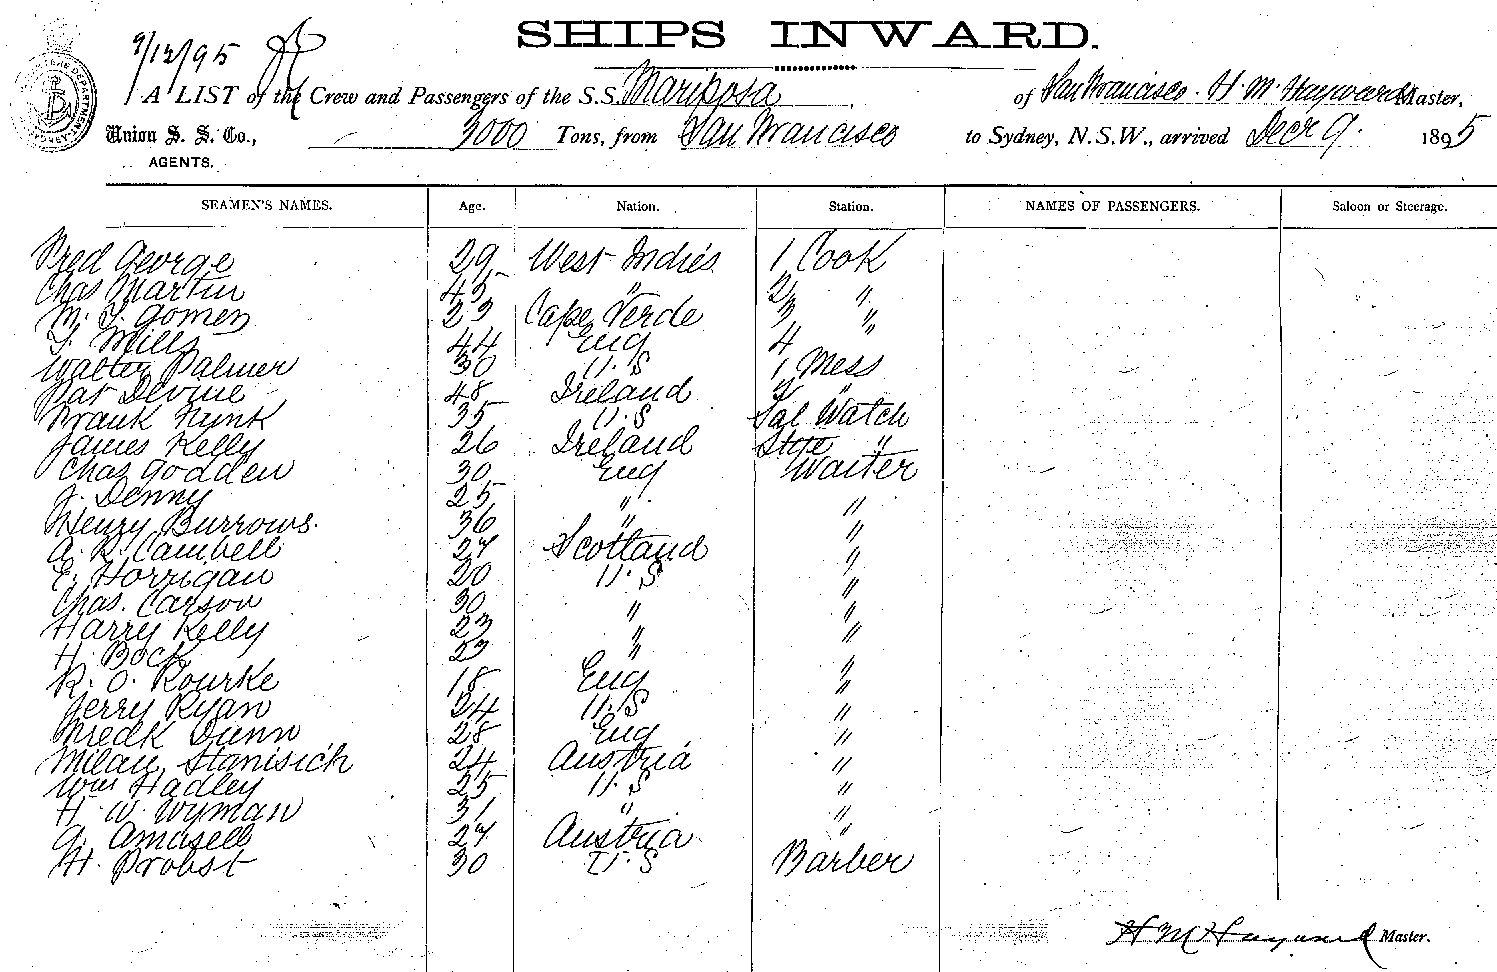 SHIPS INWARD.
9/12/95
A LIST of the Crew and Passengers of the S.S. Mariposa, of San Francisco. H. M. Hayward Master,
Union S. S. Co., 3000 Tons, from San Francisco to Sydney, N.S.W., arrived Decr 9. 1895
AGENTS.
SEAMEN'S NAMES. Age. Nation. Station. NAMES OF PASSENGERS. Saloon or Steerage.
Fred George 29 West Indies 1 Cook
Chas Martin 45 " 2 "
M. T. Gomez 23 Cape Verde 3 "
T. Mills 44 Eng 4
Walter Palmer 30 U.S 1 Mess
Pat Devine 48 Ireland 2 "
Frank Fynk 35 U.S Sal Watch
James Kelly 26 Ireland Stge "
Chas Godden 30 Eng Waiter
J. Denny 25 " "
Henry Burrows. 36 " "
A. R. Cambell 27 Scotland "
E. Horrigan 20 U.S "
Chas. Carson 30 " "
Harry Kelly 23 " "
H. Bock 23 "
R. O. Rourke 18 Eng "
Jerry Ryan 24 U.S "
Fredk Dunn 28 Eng "
Milan Stanisich 24 Austria "
Wm Hadley 25 U.S "
H. W. Wyman 31 " "
G. Amasell 27 Austria "
H. Probst 30 U.S Barber
H M Hayward Master.